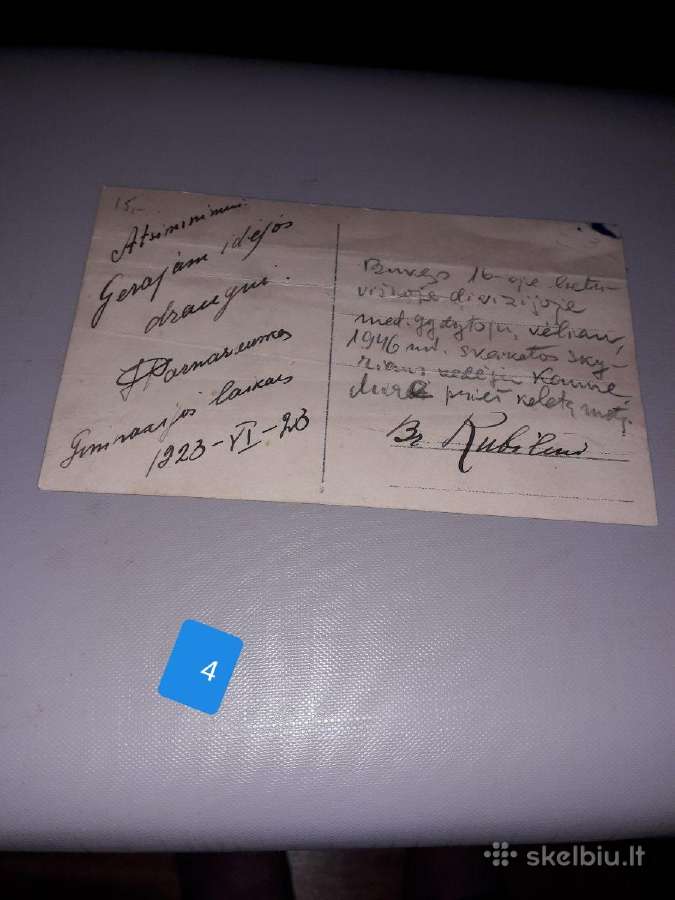 15,-
Atsiminimui
Gerajam idėjos
draugui.
Gimnazijos laikais
1923-VI-23
Buvęs 16-oje lietu-
viškoje divizijoje
med. gydytoju, vėliau,
1946 m. sveikatos sky-
riaus vedėju Kaune
Mirė prieš keletą metų.
Br. Rubikas
4
skelbiu.lt